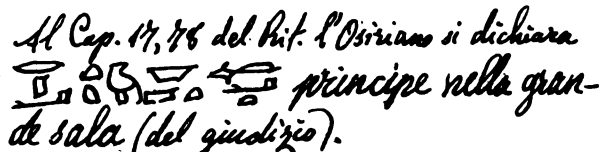 Al Cap. 17, 78 del Rit. l'Osiriano si dichiara
principe nella gran-
de sala (del giudizio).